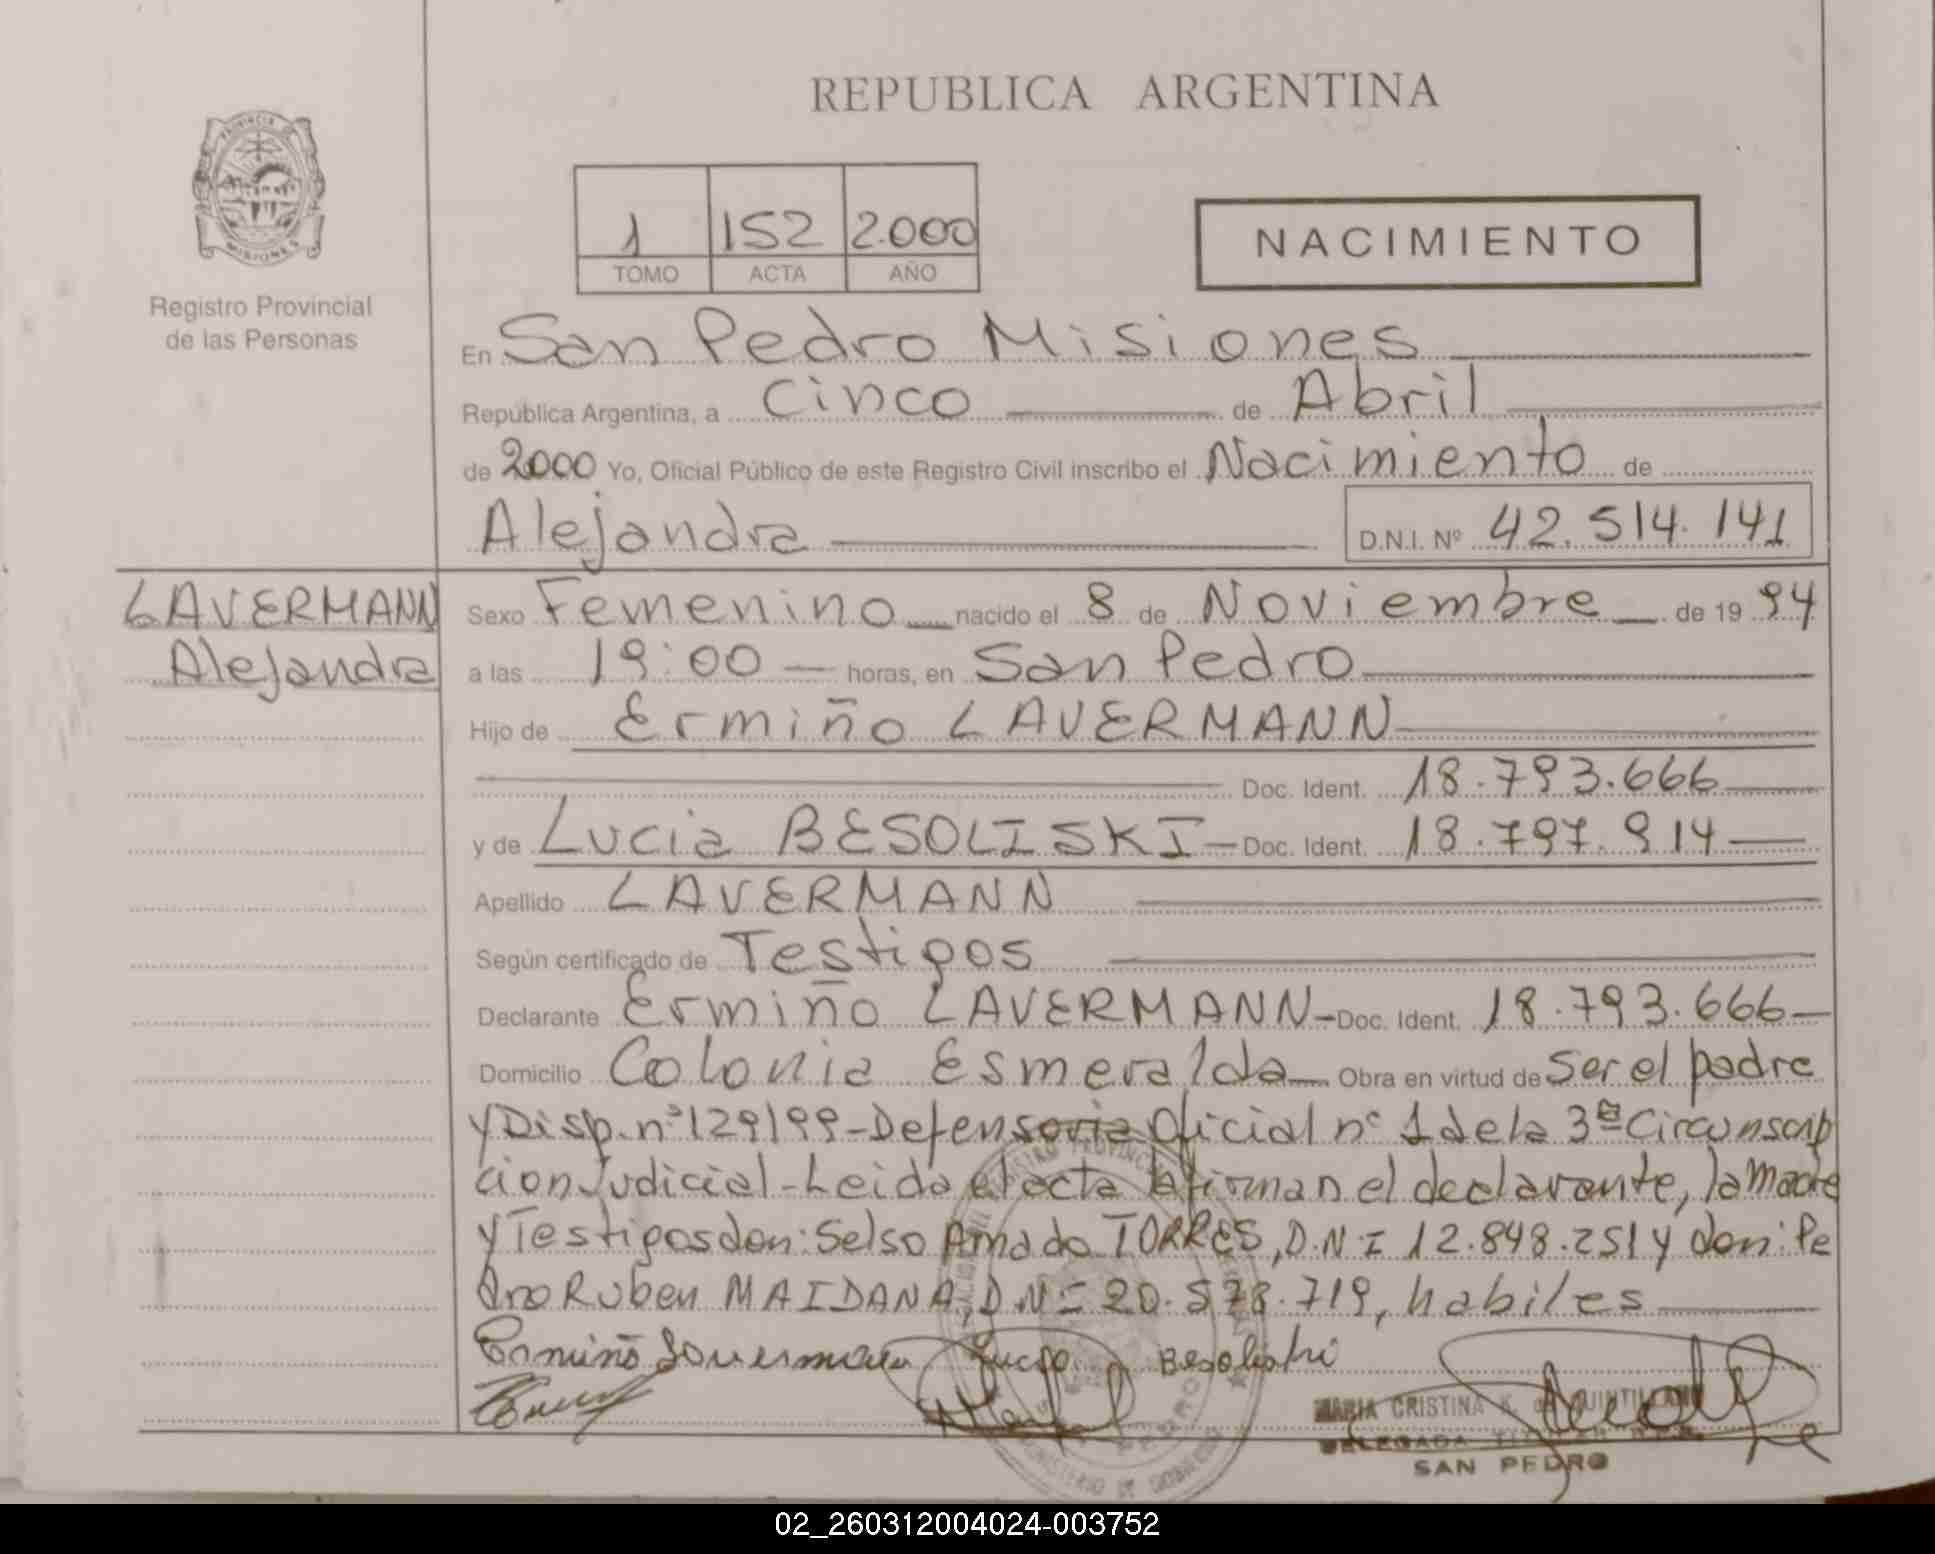 REPUBLICA ARGENTINA
PROVINCIA DE
MISIONES
Registro Provincial
de las Personas
1 152 2.000
TOMO ACTA AÑO
NACIMIENTO
En San Pedro Misiones
República Argentina, a Cinco de Abril
de 2000 Yo, Oficial Público de este Registro Civil inscribo el Nacimiento de
Alejandra D.N.I. Nº 42.514.141
LAVERMANN
Alejandra
Sexo Femenino nacido el 8 de Noviembre de 19 94
a las 19:00 horas, en San Pedro
Hijo de Ermiño LAVERMANN
Doc. Ident. 18.793.666
y de Lucia BESOLISKI Doc. Ident. 18.797.914
Apellido LAVERMANN
Según certificado de Testigos
Declarante Ermiño LAVERMANN Doc. Ident. 18.793.666
Domicilio Colonia Esmeralda Obra en virtud de Ser el padre
y Disp. nº 129/99-Defensoria Oficial nº 1 de la 3ª Circunscrip
cion Judicial-Leida el acta la firman el declarante, la Madre
y Testigos don: Selso Amado TORRES, D.N.I 12.848.251 y don: Pe
dro Ruben MAIDANA, D.N.I 20.578.719, habiles
MARIA CRISTINA K. de QUINTILIANO
DELEGADA TITULAR
SAN PEDRO
MINISTERIO DE GOBIERNO
02_260312004024-003752